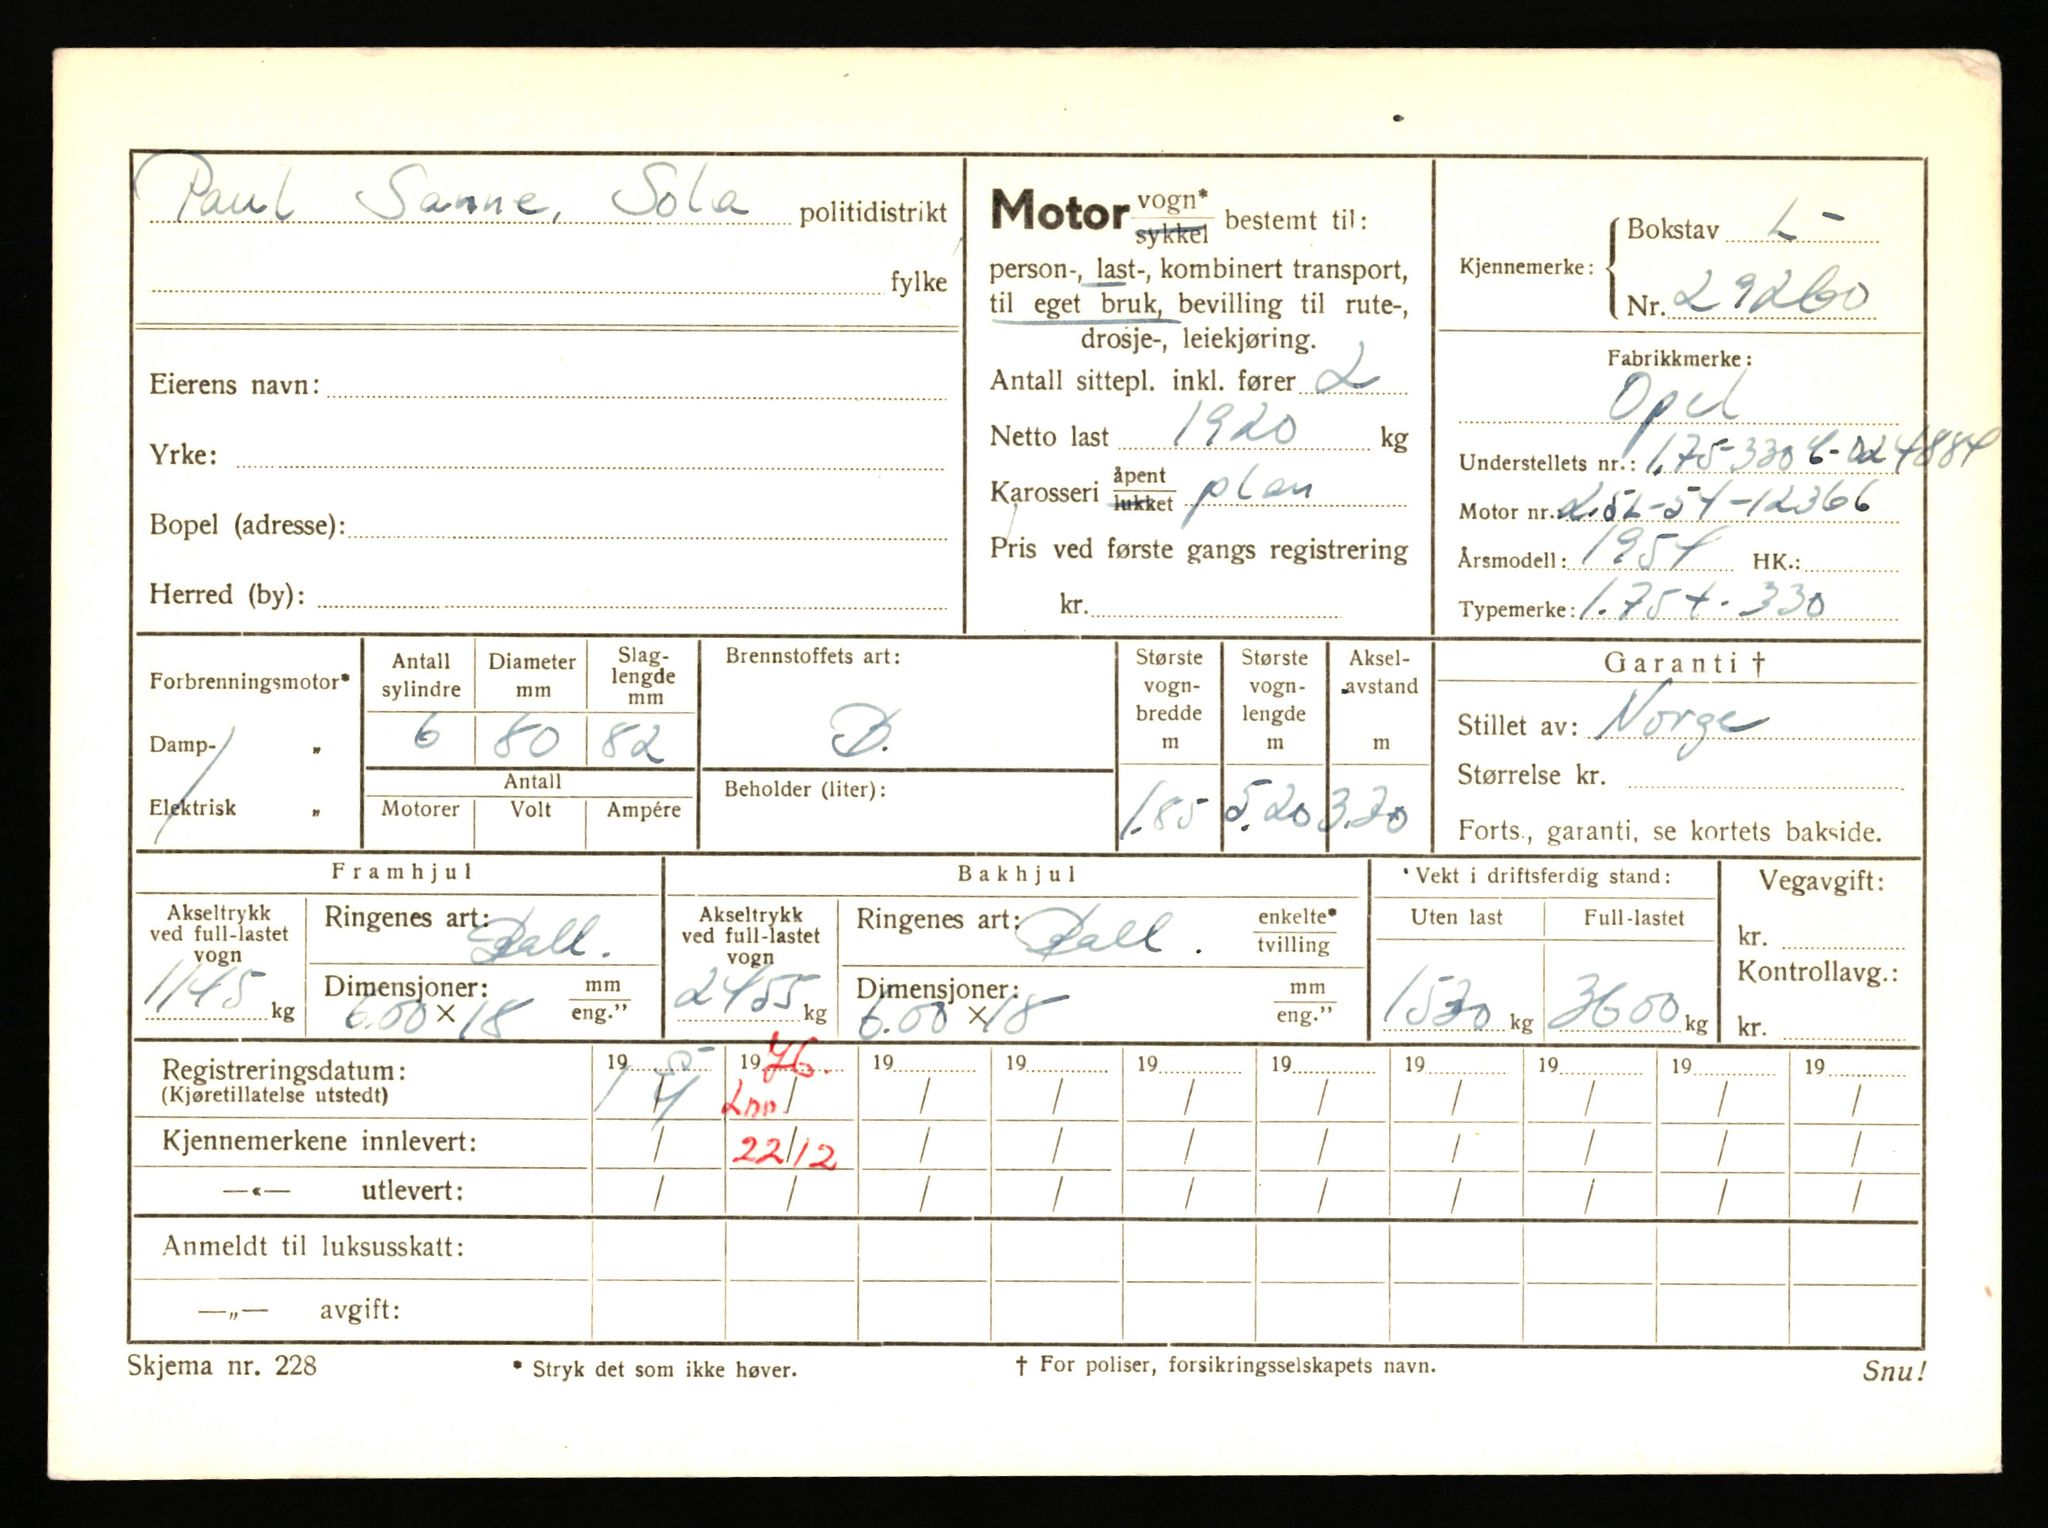 Paul Sanne, Sola politidistrikt
fylke
Eierens navn:
Yrke:
Bopel (adresse):
Herred (by):
Motor vogn* sykkel bestemt til:
person-, last-, kombinert transport,
til eget bruk, bevilling til rute-,
drosje-, leiekjøring.
Antall sittepl. inkl. fører 2
Netto last 1920 kg
Karosseri åpent lukket plan
Pris ved første gangs registrering
kr.
Kjennemerke: Bokstav L-
Nr. 29260
Fabrikkmerke:
Opel
Understellets nr.:
Motor nr. 2.5L-54-12366
Årsmodell: 1954 HK.:
Typemerke: 1.75 t. 330
Forbrenningsmotor*
Damp- „
Elektrisk „
Antall sylindre Diameter mm Slag-lengde mm
6 80 82
Antall
Motorer Volt Ampére
Brennstoffets art:
B.
Beholder (liter):
Største vogn-bredde m
1.85
Største vogn-lengde m
5.20
Aksel-avstand m
3.30
Garanti †
Stillet av: Norge
Størrelse kr.
Forts., garanti, se kortets bakside.
Framhjul
Akseltrykk ved full-lastet vogn
1145 kg
Ringenes art: Ball.
Dimensjoner: mm eng."
6.00 × 18
Bakhjul
Akseltrykk ved full-lastet vogn
2455 kg
Ringenes art: Ball. enkelte* tvilling
Dimensjoner: mm eng."
6.00 × 18
* Vekt i driftsferdig stand:
Uten last Full-lastet
1530 kg 3600 kg
Vegavgift:
kr.
Kontrollavg.:
kr.
Registreringsdatum: 19 55 19 76. 19 19 19 19 19 19 19 19
(Kjøretillatelse utstedt) 1/4 Lnn. / / / / / / / / /
Kjennemerkene innlevert: / 22/12 / / / / / / / /
—«— utlevert: / / / / / / / / / /
Anmeldt til luksusskatt:
—„— avgift:
Skjema nr. 228 * Stryk det som ikke høver. † For poliser, forsikringsselskapets navn. Snu!